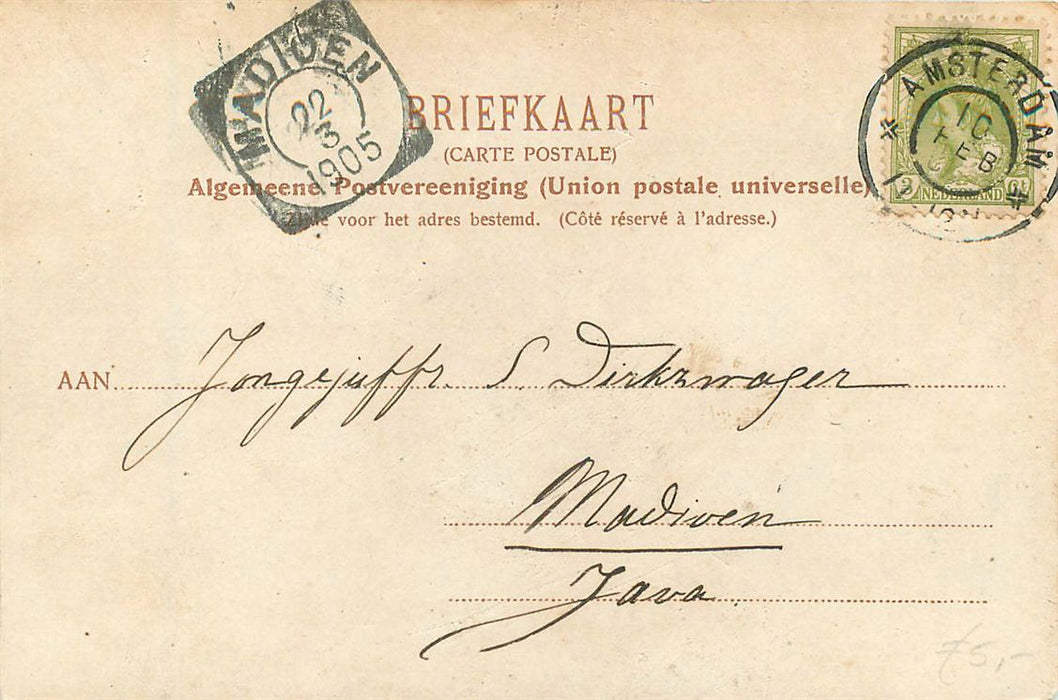 MADIOEN
22
3
1905
BRIEFKAART
(CARTE POSTALE)
Algemeene Postvereeniging (Union postale universelle)
Zijde voor het adres bestemd. (Côté réservé à l'adresse.)
AMSTERDAM
10
FEB
NEDERLAND
AAN Jongejuffr. S. Dirkzwager
Madioen
Java
£5,-